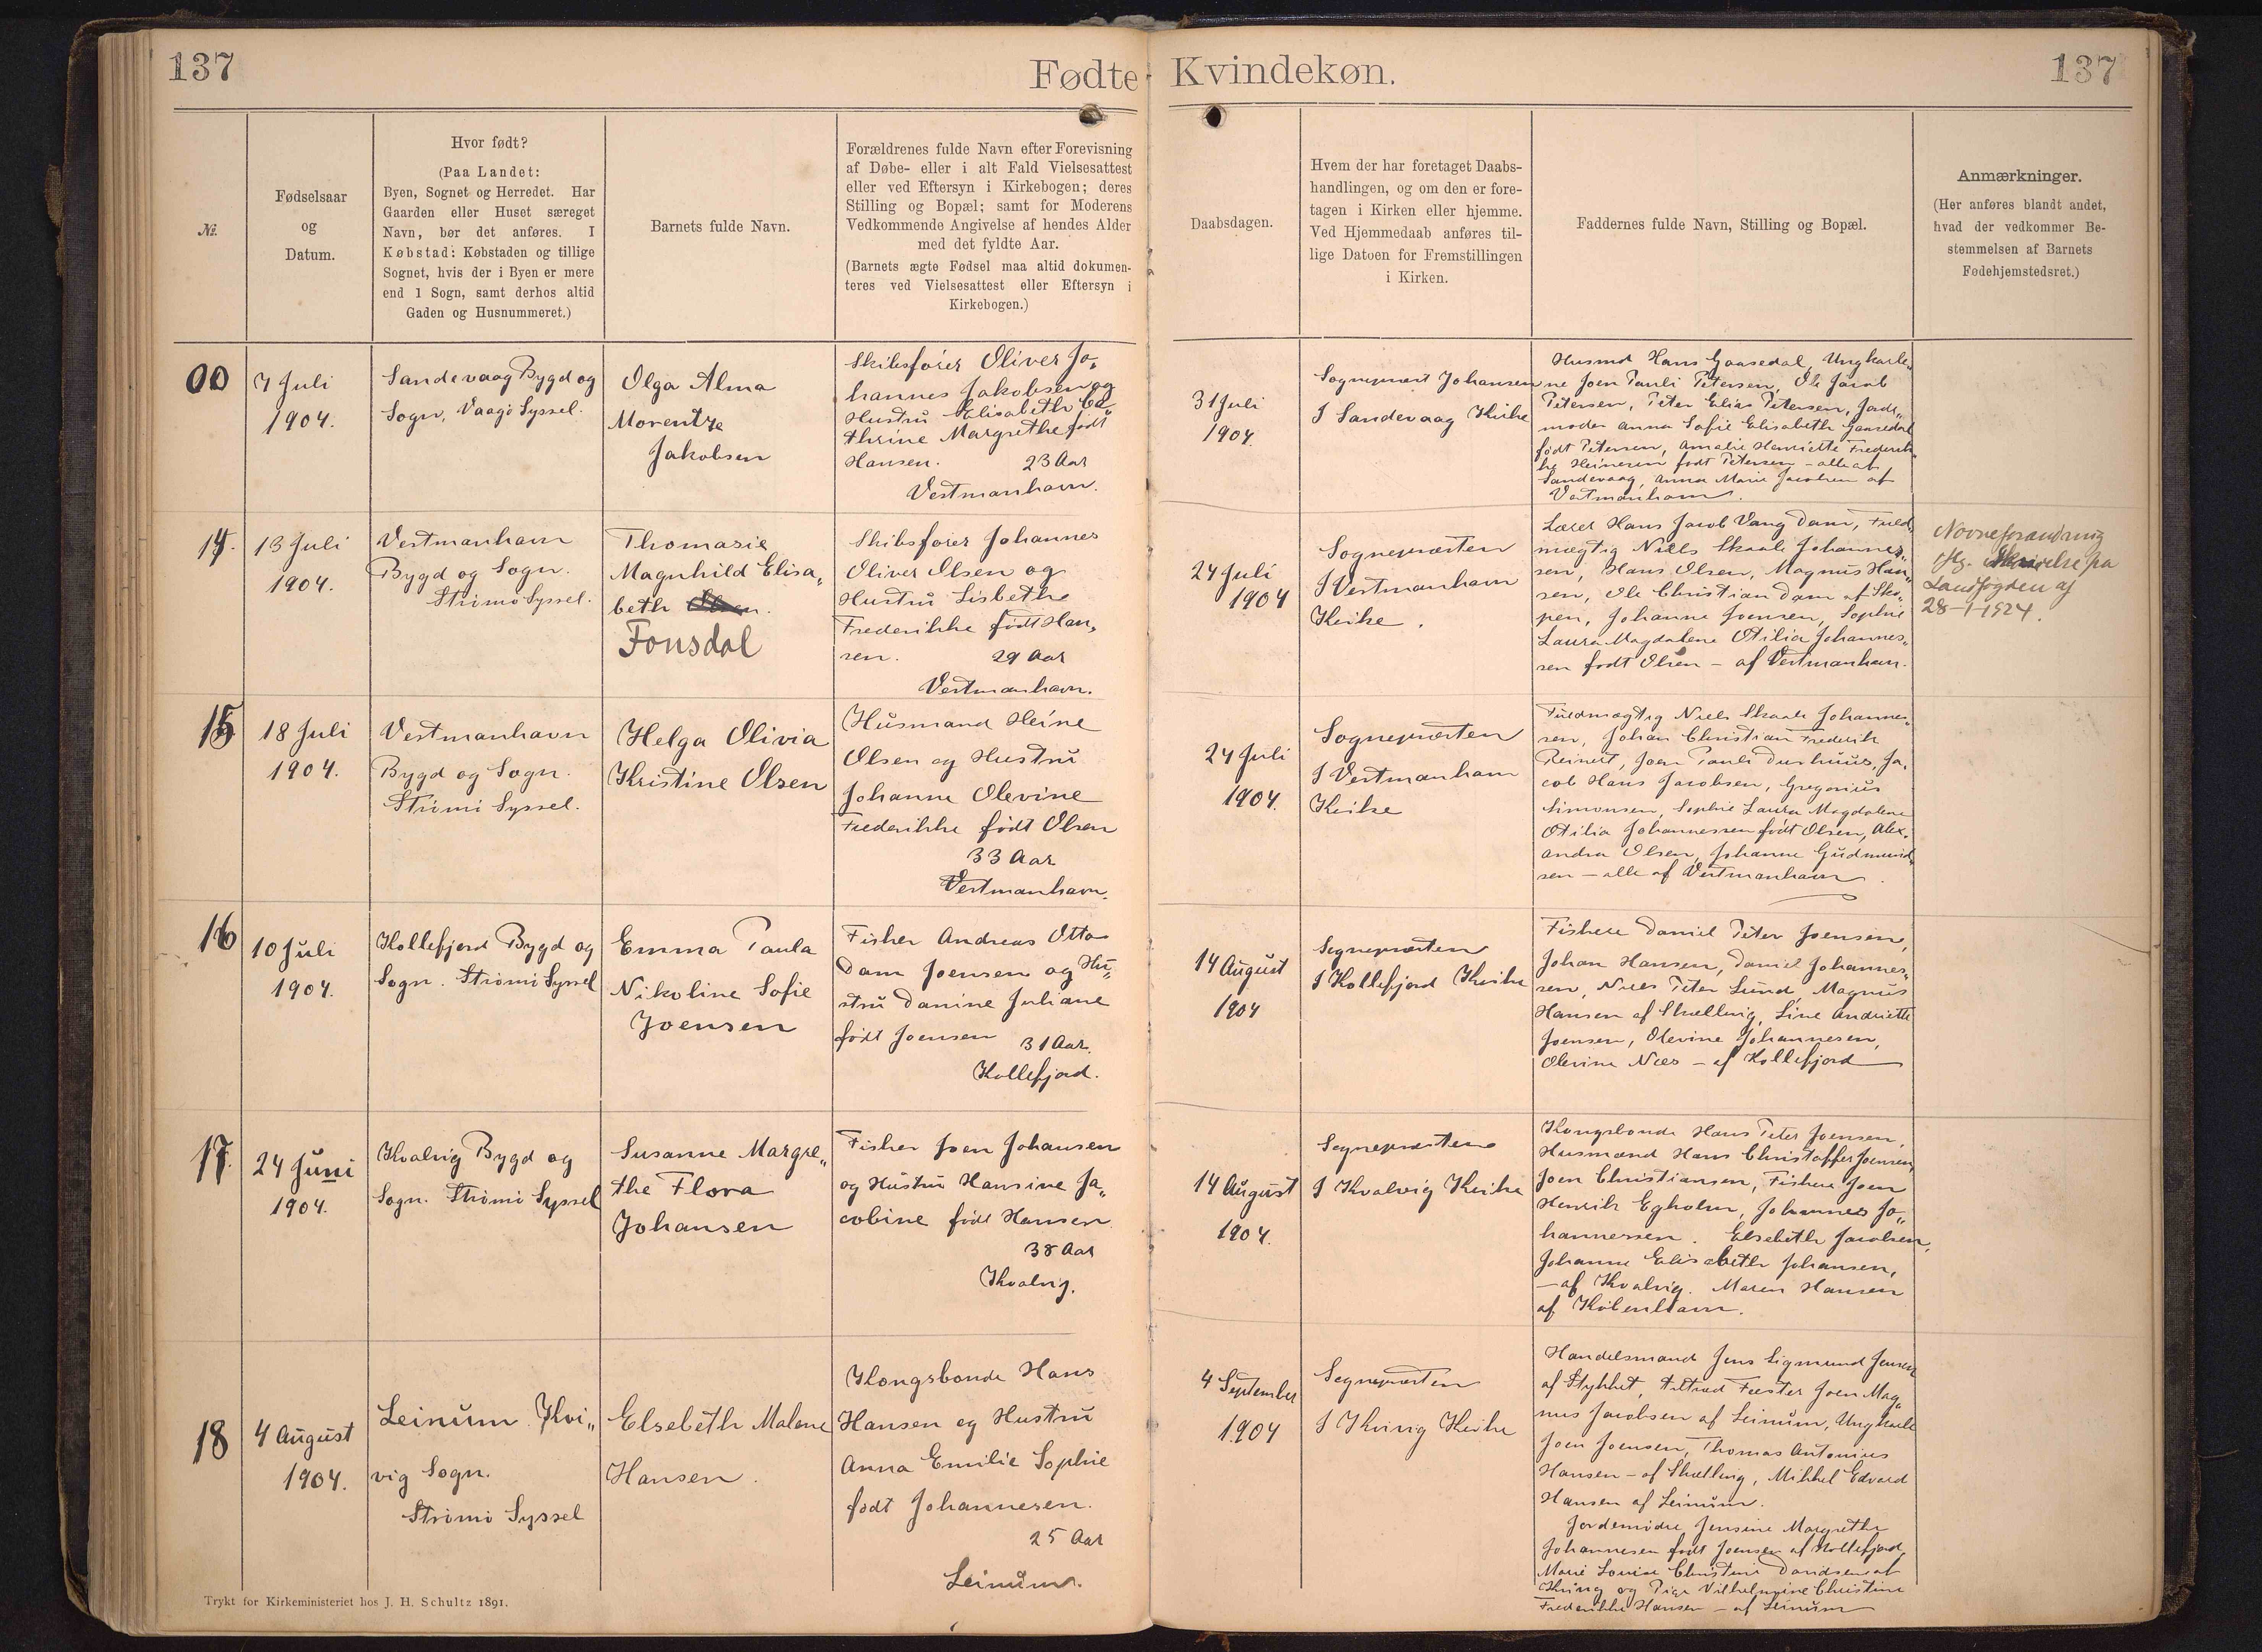 137
Fødte
Kvindekøn.
137
№.
Fødselsaar
og
Datum.
Hvor født?
(Paa Landet:
Byen, Sognet og Herredet. Har
Gaarden eller Huset særeget
Navn, bør det anføres. I
Købstad: Købstaden og tillige
Sognet, hvis der i Byen er mere
end 1 Sogn, samt derhos altid
Gaden og Husnummeret.)
Barnets fulde Navn.
Forældrenes fulde Navn efter Forevisning
af Døbe- eller i alt Fald Vielsesattest
eller ved Eftersyn i Kirkebogen; deres
Stilling og Bopæl; samt for Moderens
Vedkommende Angivelse af hendes Alder
med det fyldte Aar.
(Barnets ægte Fødsel maa altid dokumen-
teres ved Vielsesattest eller Eftersyn i
Kirkebogen.)
Daabsdagen.
Hvem der har foretaget Daabs-
handlingen, og om den er fore-
tagen i Kirken eller hjemme.
Ved Hjemmedaab anføres til-
lige Datoen for Fremstillingen
i Kirken.
Faddernes fulde Navn, Stilling og Bopæl.
Anmærkninger.
(Her anføres blandt andet,
hvad der vedkommer Be-
stemmelsen af Barnets
Fødehjemstedsret.)
00
7 Juli
1904.
Sandevaag Bygd og
Sogn, Vaagø Syssel.
Olga Alma
Morentze
Jakobsen
Skibsfører Oliver Jo„
hannes Jakobsen og
Hustru Elisabeth Ca„
thrine Margrethe født
Hansen. 23 Aar
Vestmanhavn.
31 Juli
1904.
Sognepræst Johansen
I Sandevaag Kirke
Husmd Hans Gaasedal, Ungkarle„
ne Joen Pauli Petersen, Ole Jacob
Petersen, Peter Elias Petersen, Jorde„
moder Anna Sofie Elisabeth Gaasedal
født Petersen, Amalie Henriette Frederik„
ke Heinesen født Petersen – alle af
Sandevaag, Anna Marie Jacobsen af
Vestmanhavn.
14.
13 Juli
1904.
Vestmanhavn
Bygd og Sogn.
Strømø Syssel.
Thomasie
Magnhild Elisa„
beth Olsen.
Fonsdal
Skibsfører Johannes
Oliver Olsen og
Hustru Lisbethe
Frederikke født Han„
sen. 29 Aar
Vestmanhavn.
24 Juli
1904
Sognepræsten
I Vestmanhavn
Kirke.
Lærer Hans Jacob Vang Dam, Fuld„
mægtig Niels Skaale Johannes„
sen, Hans Olsen, Magnus Han„
sen, Ole Christian Dam af Sko„
pen, Johanne Joensen, Sophie
Laura Magdalene Otilia Johannes„
sen født Olsen – af Vestmanhavn.
Navneforandring
flg. Skrivelse fra
Landfogden af
28-1-1924.
15
18 Juli
1904.
Vestmanhavn
Bygd og Sogn.
Strømø Syssel.
Helga Olivia
Kristine Olsen
Husmand Heine
Olsen og Hustru
Johanne Olevine
Frederikke født Olsen
33 Aar
Vestmanhavn.
24 Juli
1904.
Sognepræsten
I Vestmanhavn
Kirke
Fuldmægtig Niels Skaale Johannes„
sen, Johan Christian Frederik
Reinert, Joen Pauli Durhuus, Ja„
cob Hans Jacobsen, Gregorius
Simonsen, Sophie Laura Magdalene
Otilia Johannessen født Olsen, Alex„
andra Olsen, Johanne Gudmund„
sen – alle af Vestmanhavn.
16
10 Juli
1904.
Kollefjord Bygd og
Sogn. Strømø Syssel
Emma Paula
Nikoline Sofie
Joensen
Fisker Andreas Otto
Dam Joensen og Hu„
stru Danine Juliane
født Joensen 31 Aar.
Kollefjord.
14 August
1904
Sognepræsten
I Kollefjord Kirke
Fiskere Daniel Peter Joensen,
Johan Hansen, Daniel Johannes„
sen, Niels Peter Lund, Magnus
Hansen af Skælling, Line Andriette
Joensen, Olevine Johannesen,
Olevine Næs – af Kollefjord
17.
24 Juni
1904.
Kvalvig Bygd og
Sogn. Strømø Syssel
Susanne Margre„
the Flora
Johansen
Fisker Joen Johansen
og Hustru Hansine Ja„
cobine født Hansen.
38 Aar
Kvalvig.
14 August
1904.
Sognepræsten
I Kvalvig Kirke
Kongsbonde Hans Peter Joensen,
Husmænd Hans Christoffer Joensen,
Joen Christiansen, Fiskere Joen
Henrik Egholm, Johannes Jo„
hannessen. Elsebeth Jacobsen,
Johanne Elisabeth Johansen,
– af Kvalvig. Maren Hansen
af København.
18
4 August
1904.
Leinum. Kvi„
vig Sogn.
Strømø Syssel
Elsebeth Malene
Hansen.
Kongsbonde Hans
Hansen og Hustru
Anna Emilie Sophie
født Johannesen.
25 Aar
Leinum.
4 September
1904
Sognepræsten
I Kvivig Kirke
Handelsmand Jens Sigmund Jensen
af Stykket, Aftrad Fæster Joen Mag„
nus Jacobsen af Leinum, Ungkarle
Joen Joensen, Thomas Antonius
Hansen – af Skælling, Mikkel Edvard
Hansen af Leinum.
Jordemødre Jensine Margrethe
Johannesen født Joensen af Kollefjord,
Marie Louise Christine Davidsen af
Kvivig og Pige Vilhelmine Christine
Frederikke Hansen – af Leinum
Trykt for Kirkeministeriet hos J. H. Schultz 1891.